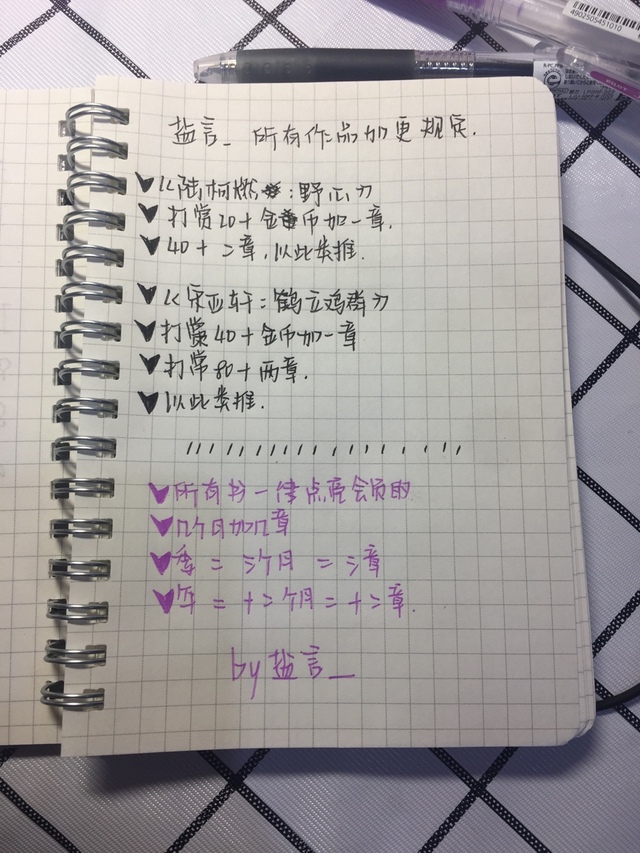 盐言_ 所有作品加更规定.
《陆柯燃：野心》
打赏20+金币加一章.
40+二章,以此类推.
《宋亚轩：鹤立鸡群》
打赏40+金币加一章
打常80+两章.
以此类推.
所有书一律点亮会员的
几个月加几章
季=三个月=三章
年=十二个月=十二章.
by 盐言_
4902505451010